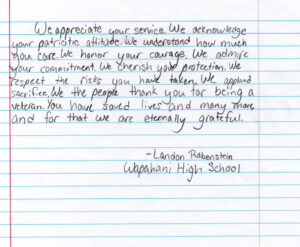 We appreciate your service. We acknowledge
your patriotic attitude. We understand how much
you care. We honor your courage. We admire
your commitment. We cherish your protection. We
respect the risks you have taken. We applaud
sacrifice. We the people thank you for being a
veteran. You have saved lives and many more
and for that we are eternally grateful.
-Landon Rabenstein
Wapahani High School